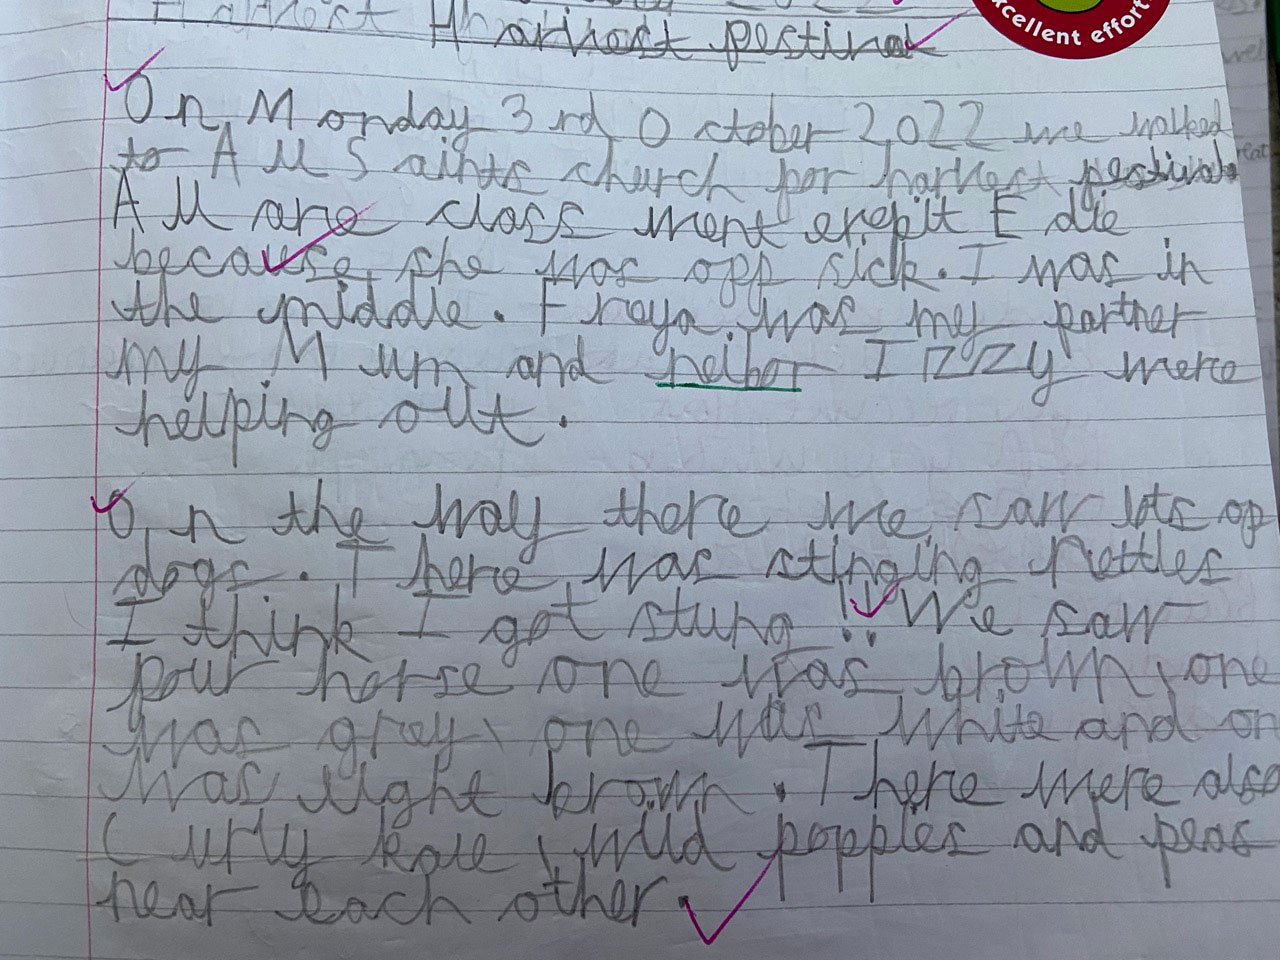 Excellent effort
Harvest festival
On Monday 3rd October 2022 we walked
to All Saints church for harvest festival
All are class went exepit Edie
because she was off sick. I was in
the middle. Freya was my partner
my Mum and neibor Izzy were
helping out.
On the way there we saw lots of
dogs. There was stinging nettles
I think I got stung!! We saw
four horse one was brown, one
was grey, one was white and on
was light brown. There were also
Curly kale, wild popples and peas
near each other.